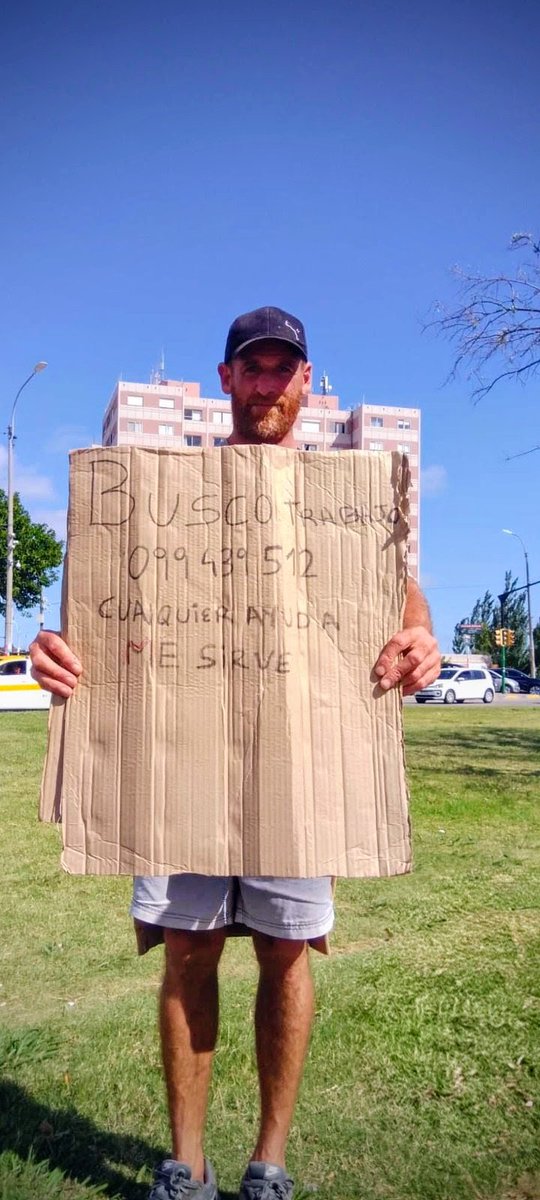 BUSCO TRABAJO
099 439 512
CUALQUIER AYUDA
ME SIRVE